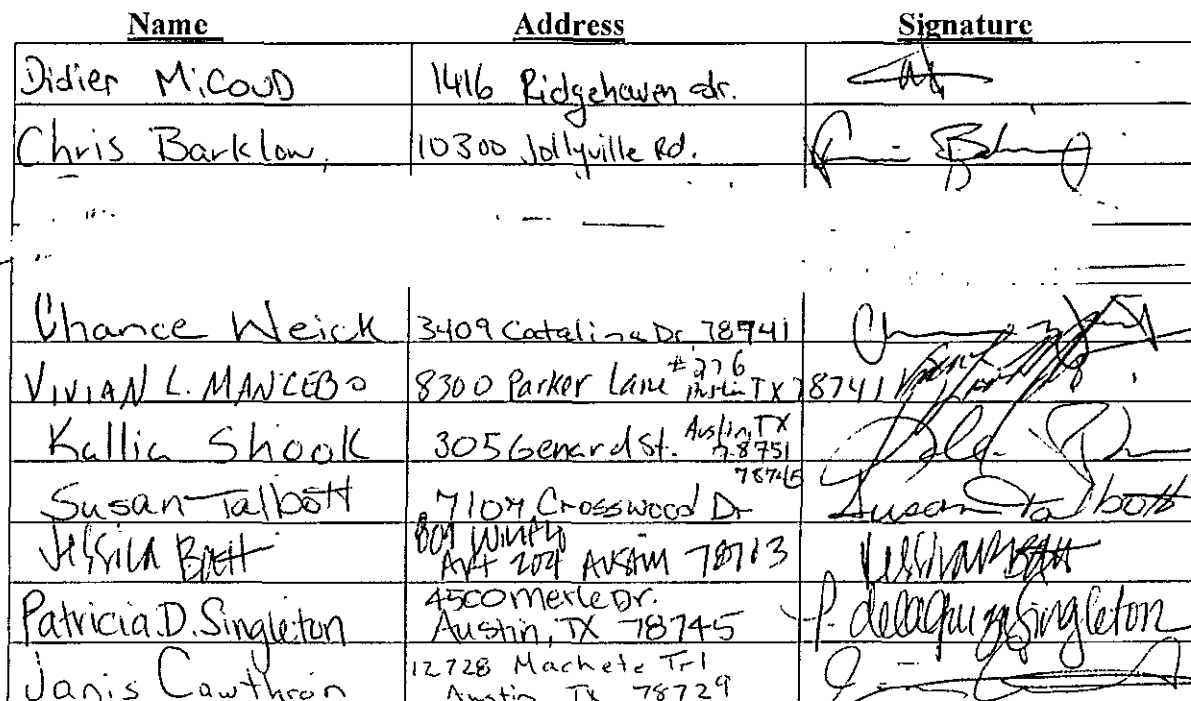 Name Address Signature
Didier MiCOUD 1416 Ridgehaven dr.
Chris Barklow 10300 Jollyville Rd.
Chance Weick 3409 Catalina Dr 78741
VIVIAN L. MANCEBO 8300 Parker Lane #276 Austin TX 78741
Kallia Shook 305 Genard St. Austin, TX 78751
78745
Susan Talbott 7107 Crosswood Dr Susan Talbott
Apt 204 Austin
Patricia.D.Singleton 4500 Merle Dr.
Austin, TX 78745 P. Singleton
Janis Cawthron 12728 Machete Trl
Austin TX 78729